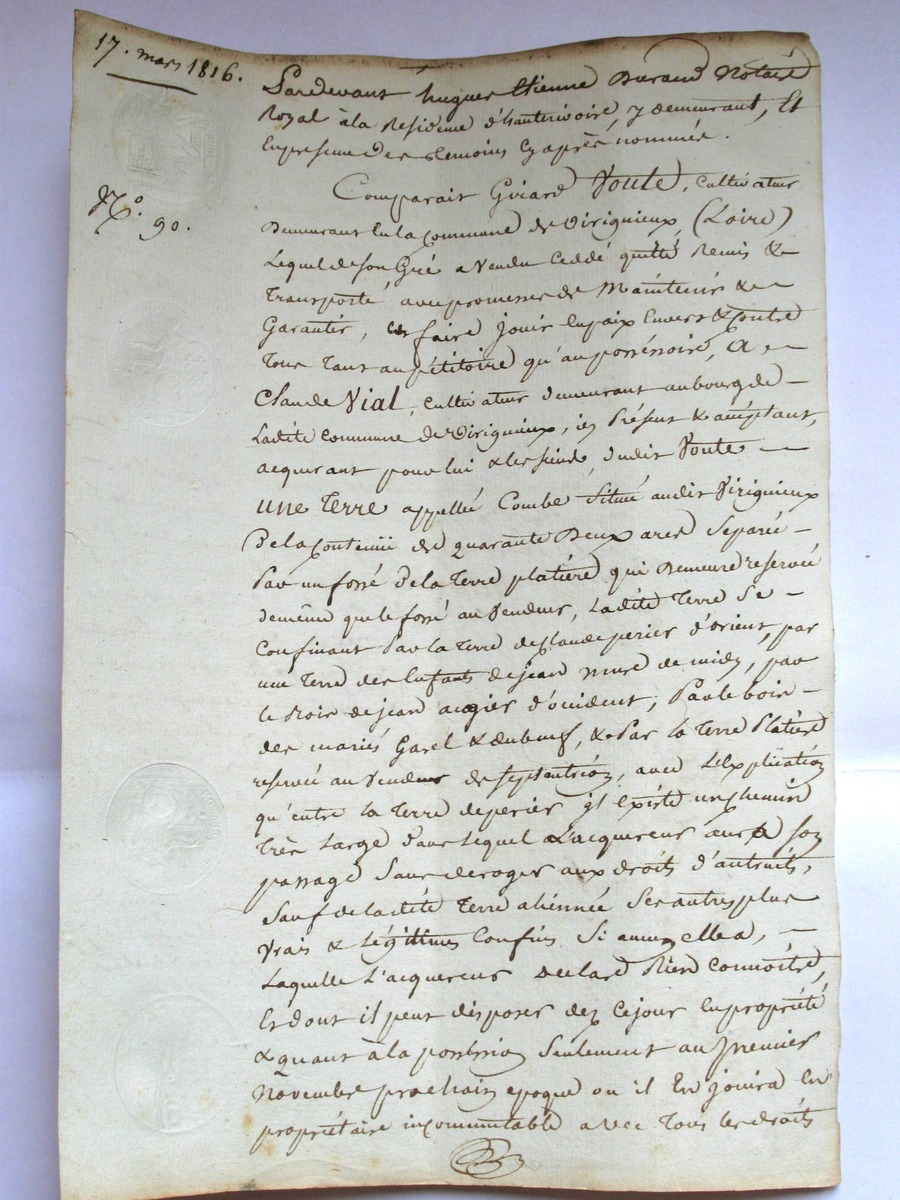 17. mars 1816.
N.° 90.
Pardevant hugues Etienne Durand Notaire
Royal à la Residence d'hauterivoire, y demeurant, Et
En presence des temoins cy après nommés.
Comparait Girard Voute, cultivateur
Demeurant En la Commune de Virignieux, (Loire)
Lequel de son Gré a Vendu Ceddé quitté Remis &
Transporté avec promesse de Maintenir &
Garantir, faire jouir En paix Envers & Contre
Tous Tant au pétitoire qu'au posséssoire, A
Claude Vial, cultivateur demeurant au bourg de
Ladite Commune de Virignieux, ici Présent & acceptant,
acquerant pour lui & les siens, dudit Voute
une Terre appellée Combe Située audit Virignieux
De la Contenue de quarante Deux ares Séparée
Par un fossé de la Terre platière qui Demeure reservée
de même que le fossé au Vendeur, Ladite Terre Se
Confinant Par la Terre de Claude perier d'orient, par
une Terre des Enfants de jean mure de midy, par
le Bois de jean d'occident, Par le bois
des mariés Garel & dubeuf, & Par la Terre Platière
reservée au Vendeur de septentrion, avec L'Explication
qu'entre la Terre de perier jl Existe un chemin
Très large dans Lequel L'acquereur aura Son
passage Sans deroger aux droits d'autruits,
Sauf de ladite Terre aliénnée Ses autres plus
Vrais & Légitimes Confins Si aucuns elle a,
Laquelle L'acquereur declare Bien Connoître,
Et dont il peut disposer dez Ce jour En propriété
& quant à la possession Seulement au premier
Novembre prochain epoque ou il En jouira En
propriétaire incommutable avec Tous les droits